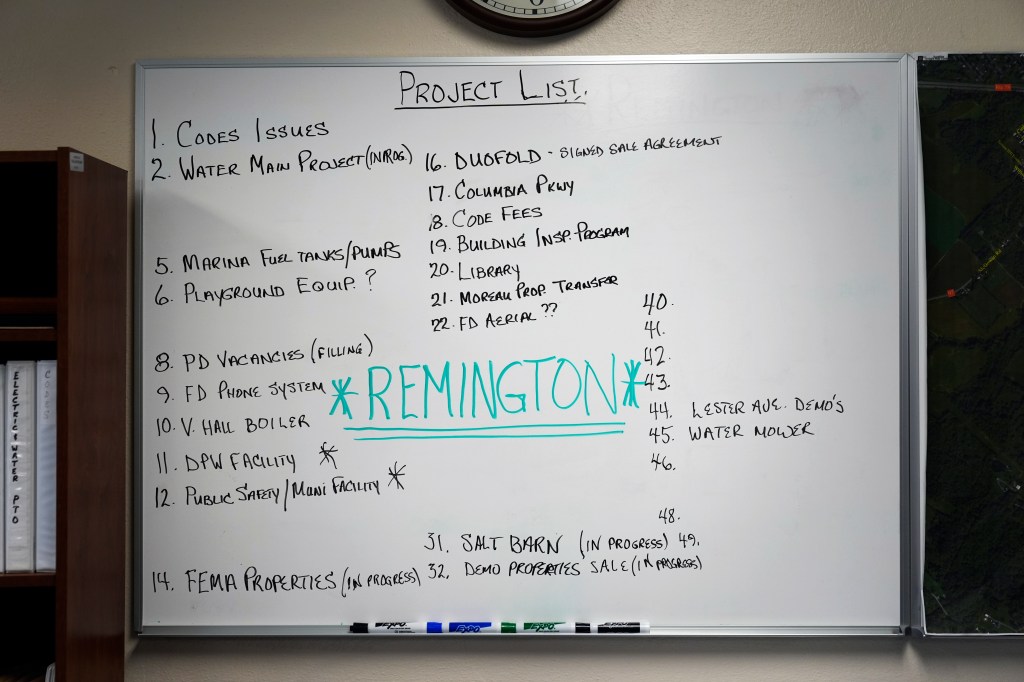 PROJECT LIST.
1. CODES ISSUES
2. WATER MAIN PROJECT (IN PROG.)
5. MARINA FUEL TANKS/PUMPS
6. PLAYGROUND EQUIP. ?
8. PD VACANCIES (FILLING)
9. FD PHONE SYSTEM
10. V. HALL BOILER
11. DPW FACILITY *
12. PUBLIC SAFETY/MUNI FACILITY *
14. FEMA PROPERTIES (IN PROGRESS)
16. DUOFOLD - SIGNED SALE AGREEMENT
17. COLUMBIA PKWY
18. CODE FEES
19. BUILDING INSP. PROGRAM
20. LIBRARY
21. MOREAU PROP. TRANSFER
22. FD AERIAL ??
*REMINGTON*
31. SALT BARN (IN PROGRESS)
32. DEMO PROPERTIES SALE (IN PROGRESS)
40.
41.
42.
43.
44. LESTER AVE. DEMO'S
45. WATER MOWER
46.
48.
49.
ELECTRIC & WATER PTO
CODES
EXPO
EXPO
EXPO
EXPO